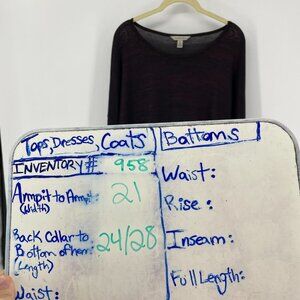 Tops, Dresses, Coats
INVENTORY # 958
Armpit to Armpit: 21
(Width)
Back Collar to
Bottom of hem: 24/28
(Length)
Waist:
Bottoms
Waist:
Rise:
Inseam:
Full Length: